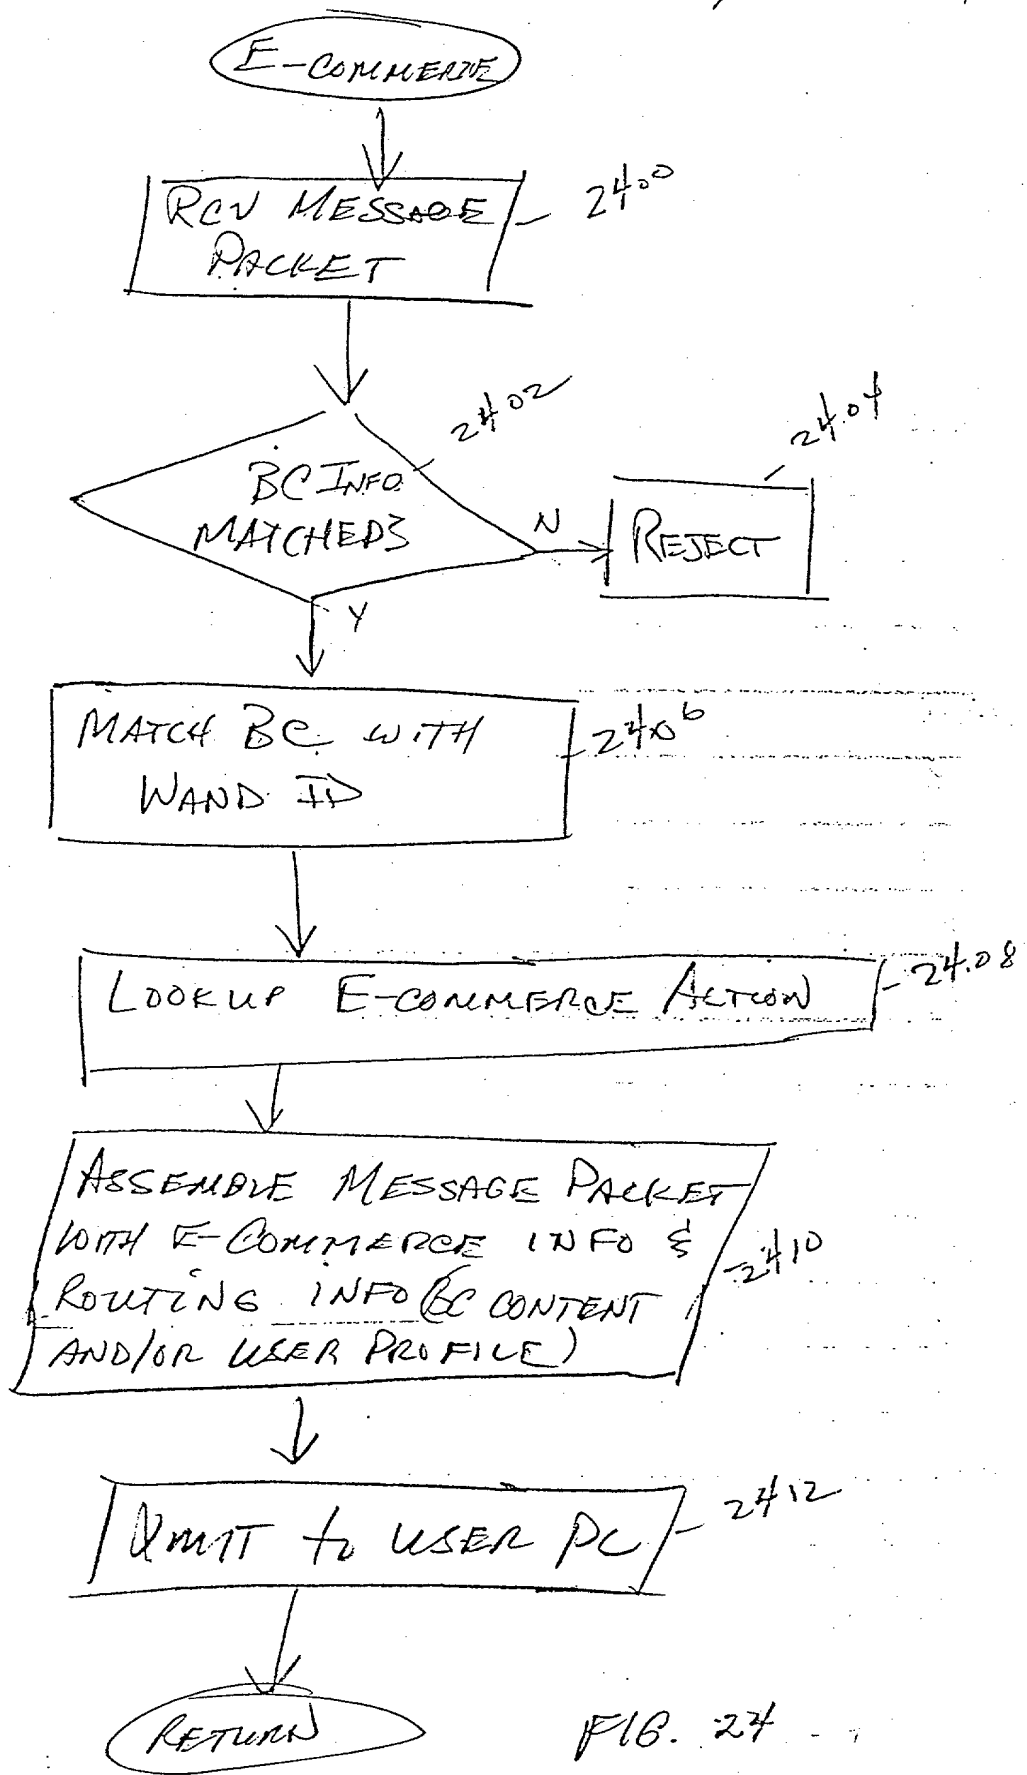 E-COMMERCE
RCV MESSAGE
PACKET
2400
2402
BC INFO
MATCHED?
N
2404
REJECT
Y
MATCH BC WITH
WAND ID
2406
LOOKUP E-COMMERCE ACTION
2408
ASSEMBLE MESSAGE PACKET
WITH E-COMMERCE INFO &
ROUTING INFO (BC CONTENT
AND/OR USER PROFILE)
2410
XMIT to USER PC
2412
RETURN
FIG. 24